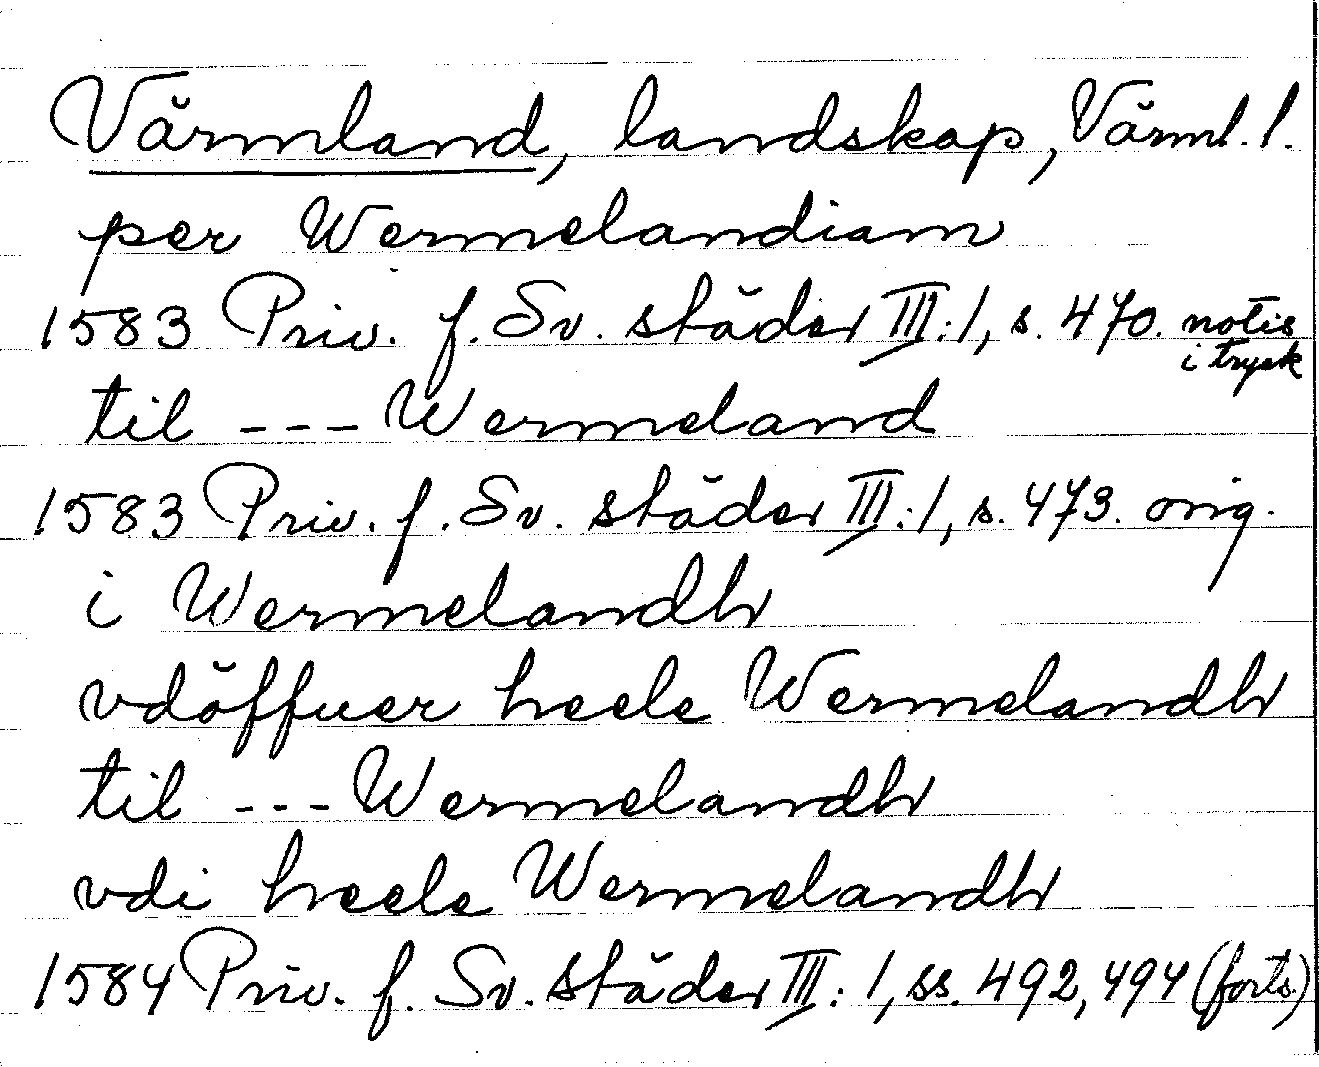 Värmland, landskap, Värml. l.
per Wermelandiam
1583 Priv. f. Sv. städer III:1, s. 470. notis i tryck
til --- Wermeland
1583 Priv. f. Sv. städer III:1, s. 473. orig.
i Wermelandh
vdöffuer heele Wermelandh
til --- Wermelandh
vdi heele Wermelandh
1584 Priv. f. Sv. städer III:1, ss. 492, 494 (forts.)